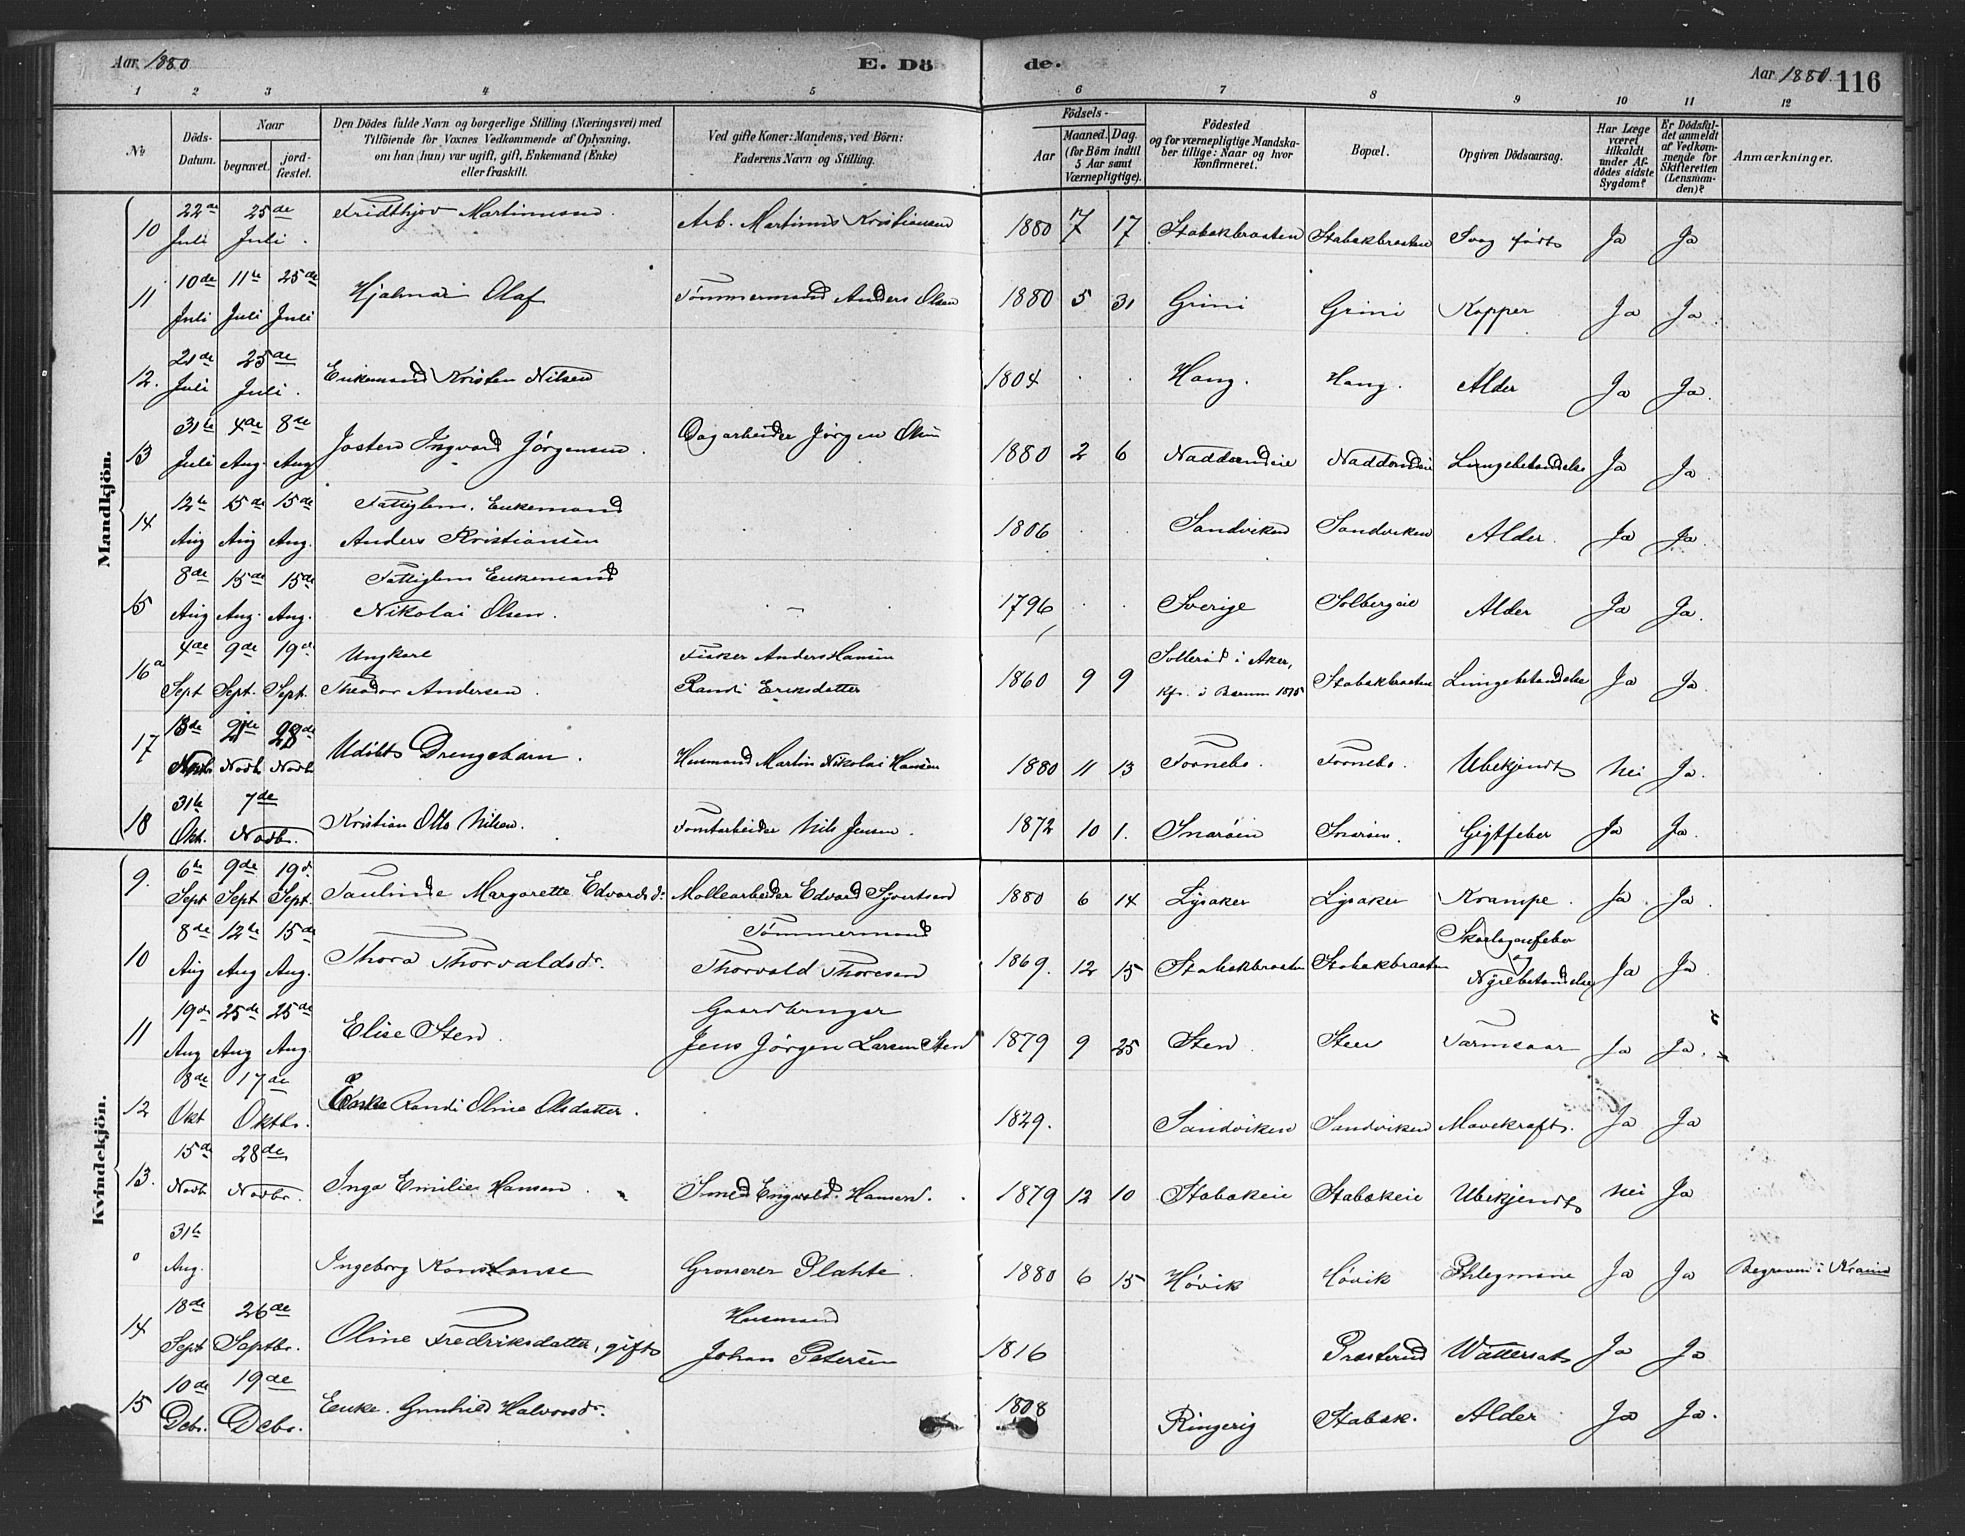 Aar 1880 E. Dö de. Aar 1880. 116
1 2 3 4 5 6 7 8 9 10 11 12
No
Döds-Datum.
Naar
begravet.
jordfæstet.
Den Dödes fulde Navn og borgerlige Stilling (Næringsvei) med
Tilföiende for Voxnes Vedkommende af Oplysning,
om han (hun) var ugift, gift, Enkemand (Enke)
eller fraskilt.
Ved gifte Koner: Mandens, ved Börn:
Faderens Navn og Stilling.
Födsels-
Aar
Maaned. Dag.
(for Börn indtil
5 Aar samt
Værnepligtige).
Födested
og for værnepligtige Mandskaber tillige: Naar og hvor
konfirmeret.
Bopæl.
Opgiven Dödsaarsag.
Har Læge
været
tilkaldt
under Afdödes sidste
Sygdom?
Er Dödsfaldet anmeldt
af Vedkommende for
Skifteretten
(Lensmanden)?
Anmærkninger.
Mandkjön.
10 22de Juli 25de Juli. Fridthjov Martinusen. Arb. Martinus Kristiansen 1880 7 17 Stabækbraaten Stabækbraaten Svag födt Ja Ja
11 10de Juli 11te Juli 25de Juli Hjalmar Olaf Tømmermand Anders Olsen 1880 5 31 Grini Grini Kopper Ja Ja
12. 21de Juli 25de Juli. Enkemand Kristen Nilsen 1804 . . Haug. Haug. Alder Ja Ja.
13 31te Juli 4de Aug. 8de Aug Josten Ingvard Jørgensen. Dagarbeider Jørgen Olsen 1880 2 6 Nadderudeie Nadderudeie Lungebetændelse Ja Ja
14 12te Aug 15de Aug 15de Aug. Fattiglem. Enkemand
Anders Kristiansen 1806 . . Sandviken Sandviken Alder. Ja Ja.
15 8de Aug 15de Aug. 15de Aug. Fattiglem Enkemand
Nikolai Olsen. – 1796 . . Sverige Solbergeie Alder Ja Ja.
16 4de Sept 9de Sept. 19de Sept. Ungkarl
Theodor Andersen. Fisker Anders Hansen
Randi Eriksdatter 1860 9 9 Sollerud i Aker,
Kfr. i Bærum 1875 Stabækbraaten Lungebetændelse Ja Ja.
17 13de Novbr 21de Novb. 28de Novb. Udöbt Drengebarn. Husmand Martin Nikolai Hansen 1880 11 13 Fornebo. Fornebo. Ubekjendt Nei Ja.
18 31te Okt. 7de Novbr. Kristian Otto Nilsen. Tomtarbeider Nils Jensen. 1872 10 1. Snarøen Snarøen. Gigtfeber Ja Ja.
Kvindekjön.
9. 6te Sept 9de Sept 19de Sept. Paulinde Margarette Edvardsd: Møllearbeider Edvard Syvertsen 1880 6 14 Lysaker Lysaker Krampe. Ja. Ja.
10 8de Aug 12te Aug 15de Aug. Thora Thorvaldsdr. Tømmermand
Thorvald Thoresen 1869. 12 15 Stabækbraaten Stabækbraaten Skarlagensfeber
og
Nyrebetændelse Ja Ja.
11 19de Aug 25de Aug 25de Aug. Elise Sten. Gaardbruger
Jens Jørgen Larsen Sten 1879 9 25 Sten. Sten Tarmsaar Ja Ja.
12 8de Okt 17de Oktbr. Enke Randi Oline Olsdatter. 1829. Sandviken Sandviken Mavekræft. Ja Ja
13. 15de Novb. 28de Novbr. Inga Emilie Hansen. Smed Engvald Hansen. 1879 12 10 Stabækeie Stabækeie Ubekjendt Nei Ja
0 31te Aug. Ingeborg Konstanse Grosserer Plahte. 1880 6 15 Høvik Høvik Phlegmone Ja Ja Begraven i
14 18de Sept 26de Septbr. Oline Fredriksdatter, gift Husmand
Johan Petersen 1816 Præsterud Wattersot Ja Ja
15 10de Dcbr. 19de Dcbr. Enke. Gunhild Halvorsdr. 1808 Ringerig Stabæk. Alder Ja Ja.